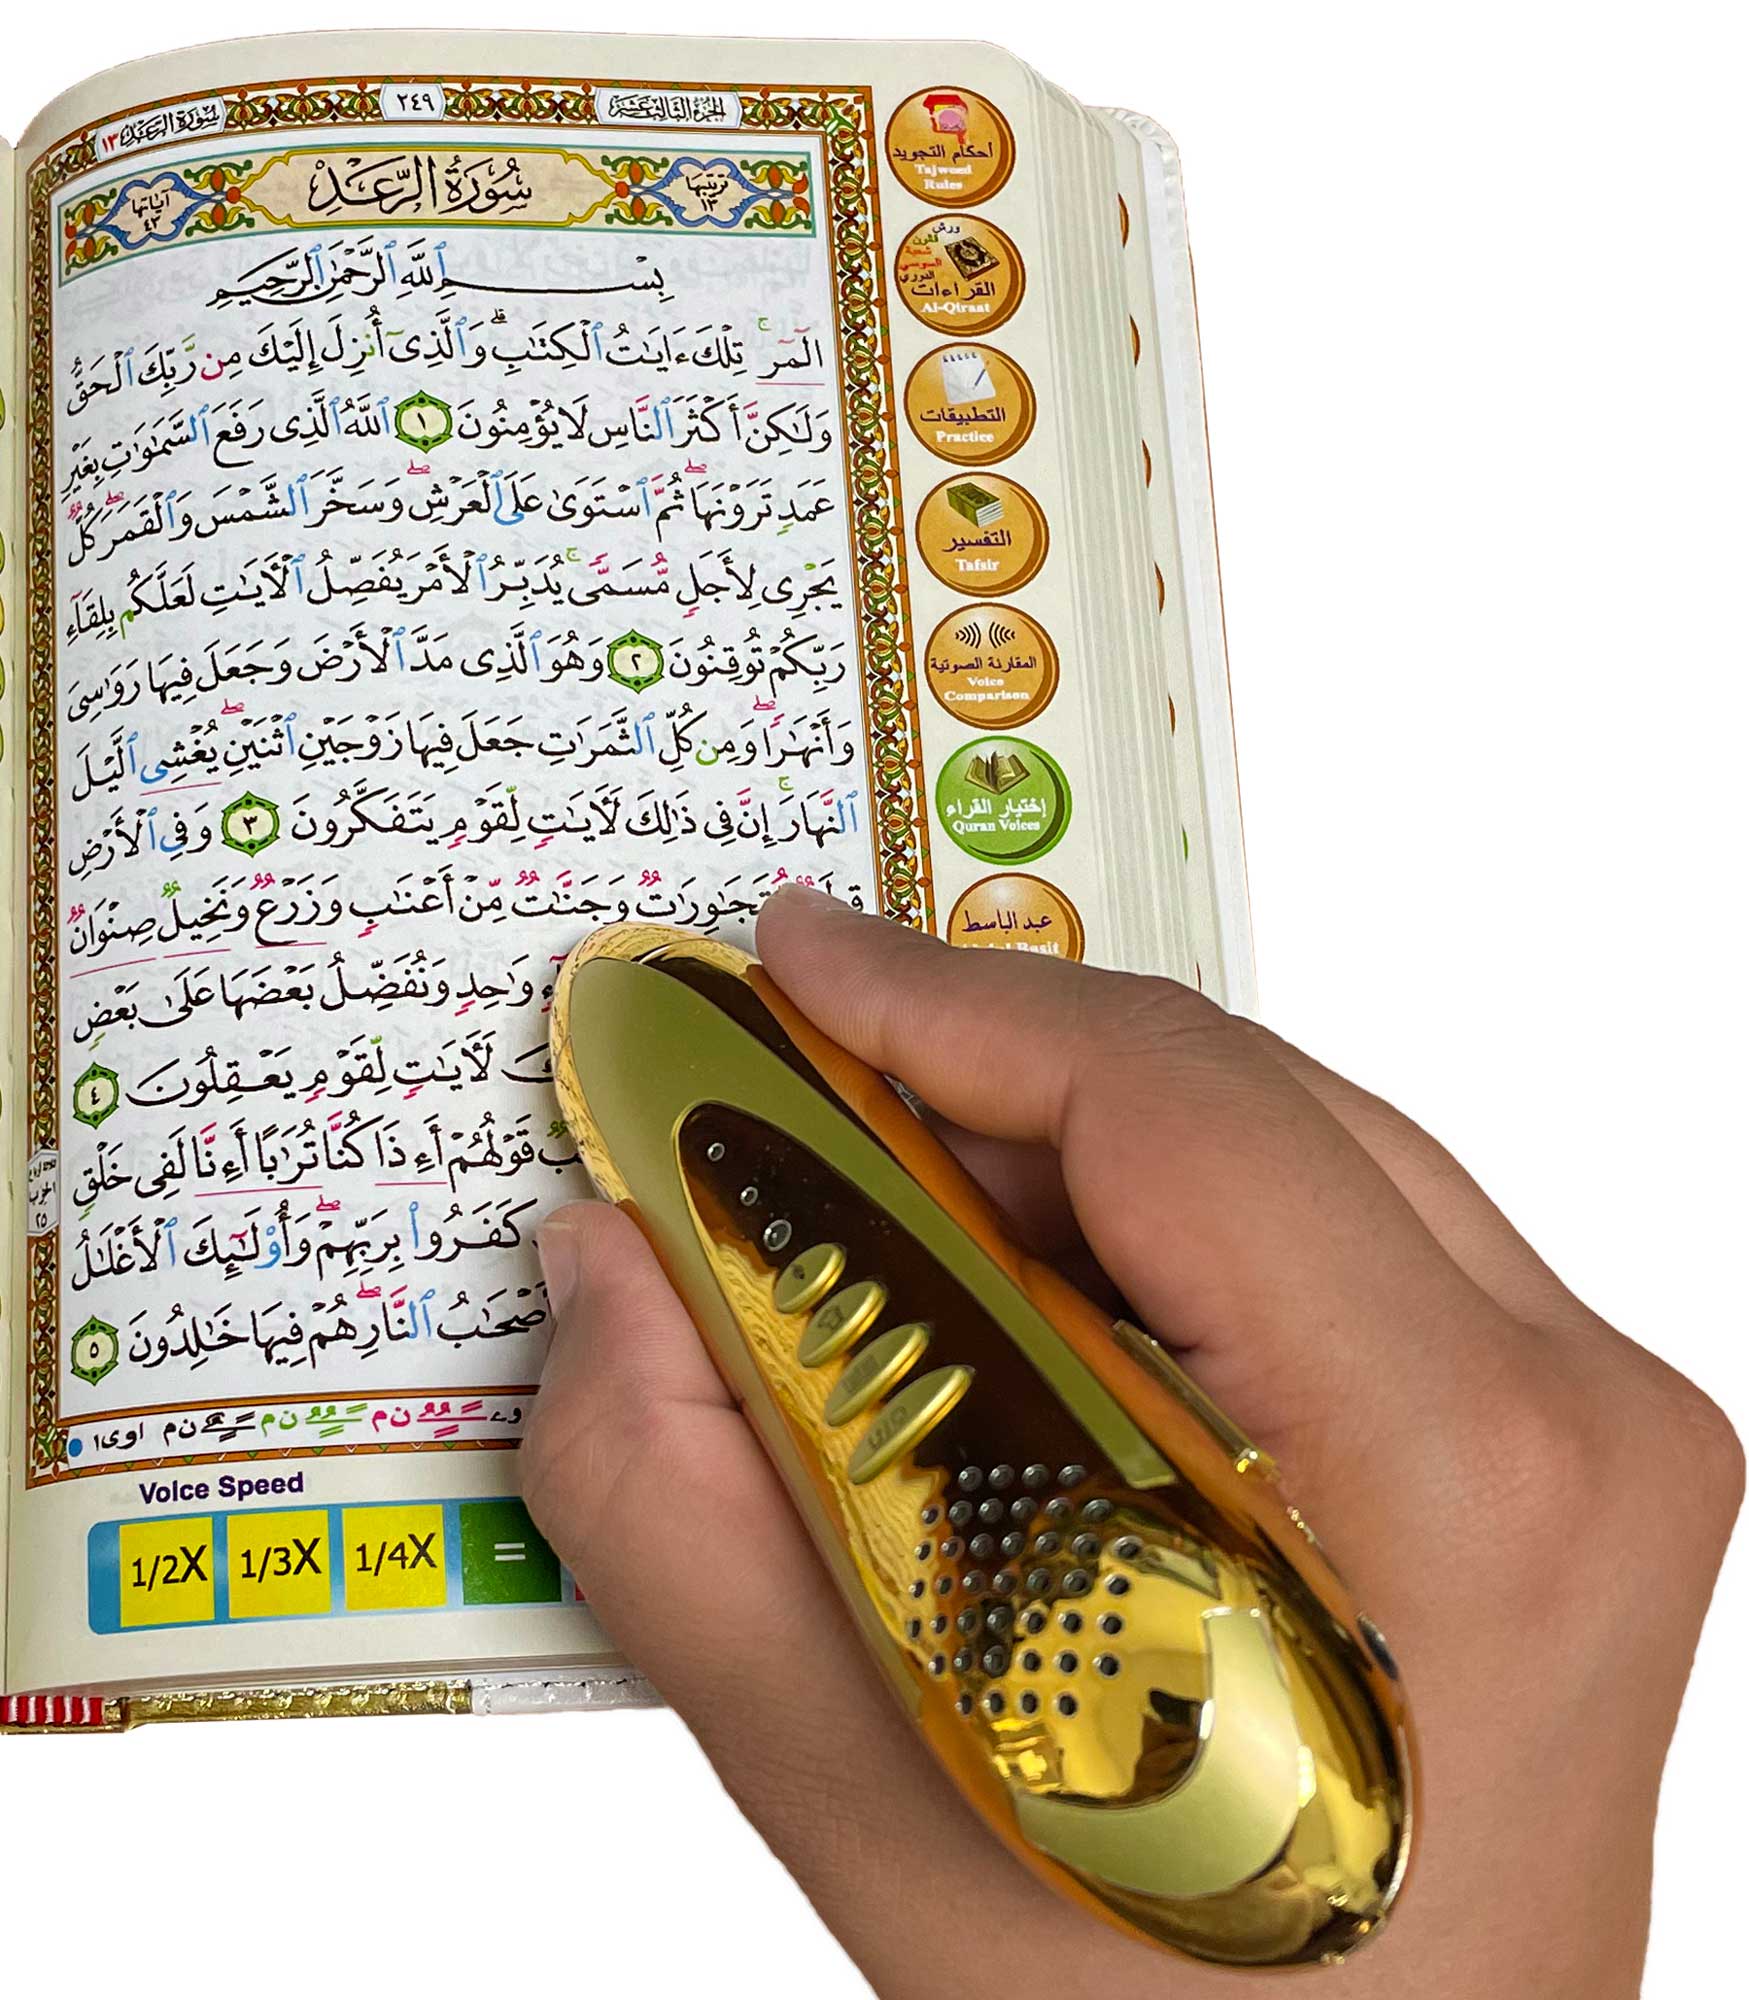 الجزء الثالث عشر
٢٤٩
سورة الرعد ١٣
ترتيبها ١٣
سُورَةُ الرَّعْدِ
آياتها ٤٣
بِسْمِ ٱللَّهِ ٱلرَّحْمَٰنِ ٱلرَّحِيمِ
الٓمٓر ۚ تِلْكَ ءَايَٰتُ ٱلْكِتَٰبِ ۗ وَٱلَّذِىٓ أُنزِلَ إِلَيْكَ مِن رَّبِّكَ ٱلْحَقُّ
وَلَٰكِنَّ أَكْثَرَ ٱلنَّاسِ لَا يُؤْمِنُونَ ١ ٱللَّهُ ٱلَّذِى رَفَعَ ٱلسَّمَٰوَٰتِ بِغَيْرِ
عَمَدٍ تَرَوْنَهَا ۖ ثُمَّ ٱسْتَوَىٰ عَلَى ٱلْعَرْشِ ۖ وَسَخَّرَ ٱلشَّمْسَ وَٱلْقَمَرَ ۖ كُلٌّ
يَجْرِى لِأَجَلٍ مُّسَمًّى ۚ يُدَبِّرُ ٱلْأَمْرَ يُفَصِّلُ ٱلْءَايَٰتِ لَعَلَّكُم بِلِقَآءِ
رَبِّكُمْ تُوقِنُونَ ٢ وَهُوَ ٱلَّذِى مَدَّ ٱلْأَرْضَ وَجَعَلَ فِيهَا رَوَٰسِىَ
وَأَنْهَٰرًا ۖ وَمِن كُلِّ ٱلثَّمَرَٰتِ جَعَلَ فِيهَا زَوْجَيْنِ ٱثْنَيْنِ ۖ يُغْشِى ٱلَّيْلَ
ٱلنَّهَارَ ۚ إِنَّ فِى ذَٰلِكَ لَءَايَٰتٍ لِّقَوْمٍ يَتَفَكَّرُونَ ٣ وَفِى ٱلْأَرْضِ
مُّتَجَٰوِرَٰتٌ وَجَنَّٰتٌ مِّنْ أَعْنَٰبٍ وَزَرْعٌ وَنَخِيلٌ صِنْوَانٌ
وَٰحِدٍ وَنُفَضِّلُ بَعْضَهَا عَلَىٰ بَعْضٍ
لَءَايَٰتٍ لِّقَوْمٍ يَعْقِلُونَ ٤
قَوْلُهُمْ أَءِذَا كُنَّا تُرَٰبًا أَءِنَّا لَفِى خَلْقٍ
كَفَرُوا۟ بِرَبِّهِمْ ۖ وَأُو۟لَٰٓئِكَ ٱلْأَغْلَٰلُ
أَصْحَٰبُ ٱلنَّارِ ۖ هُمْ فِيهَا خَٰلِدُونَ ٥
ثلاثة أرباع
الحزب
٢٥
ن م ن م ن م اوى١
Voice Speed
1/2X 1/3X 1/4X =
أحكام التجويد
Tajweed
Rules
ورش
قالون
شعبة
السوسي
الدوري
القراءات
Al-Qiraat
التطبيقات
Practice
التفسير
Tafsir
المقارنة الصوتية
Voice
Comparison
إختيار القراء
Quran Voices
عبد الباسط
Basit